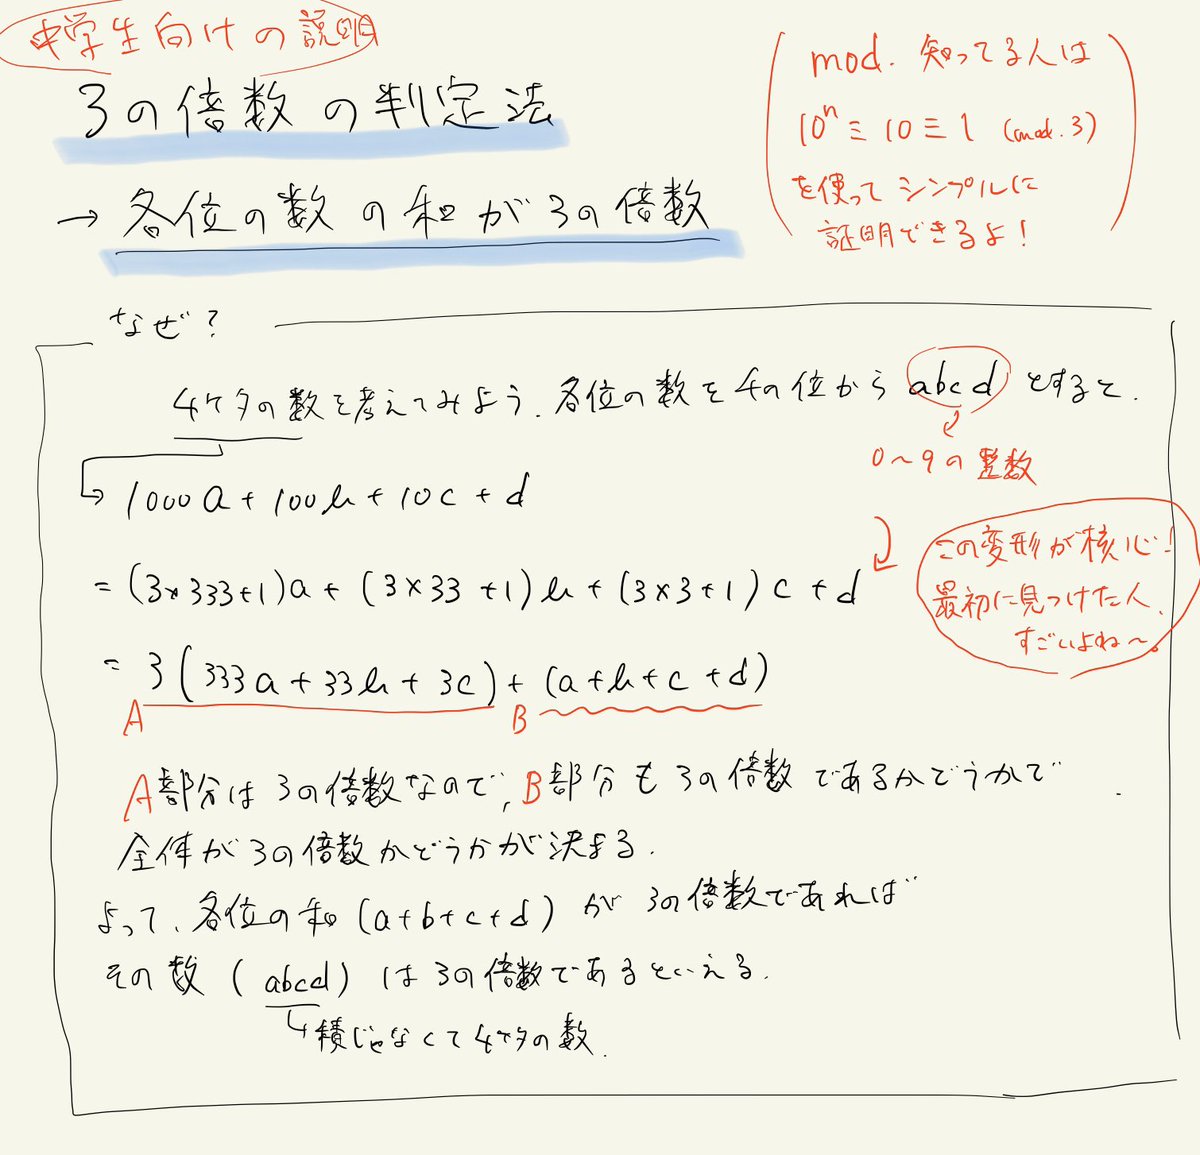 中学生向けの説明
3の倍数の判定法
→ 各位の数の和が3の倍数
mod. 知ってる人は
10ⁿ ≡ 10 ≡ 1 (mod. 3)
を使ってシンプルに
証明できるよ!
なぜ?
4ケタの数を考えてみよう. 各位の数を千の位から abcd とすると.
0〜9の整数
1000a + 100b + 10c + d
= (3×333+1)a + (3×33+1)b + (3×3+1)c + d
この変形が核心!
最初に見つけた人、
すごいよね〜。
= 3(333a + 33b + 3c) + (a+b+c+d)
A B
A部分は3の倍数なので, B部分も3の倍数であるかどうかで
全体が3の倍数かどうかが決まる.
よって、各位の和 (a+b+c+d) が 3の倍数であれば
その数 (abcd) は3の倍数であるといえる.
積じゃなくて4ケタの数.